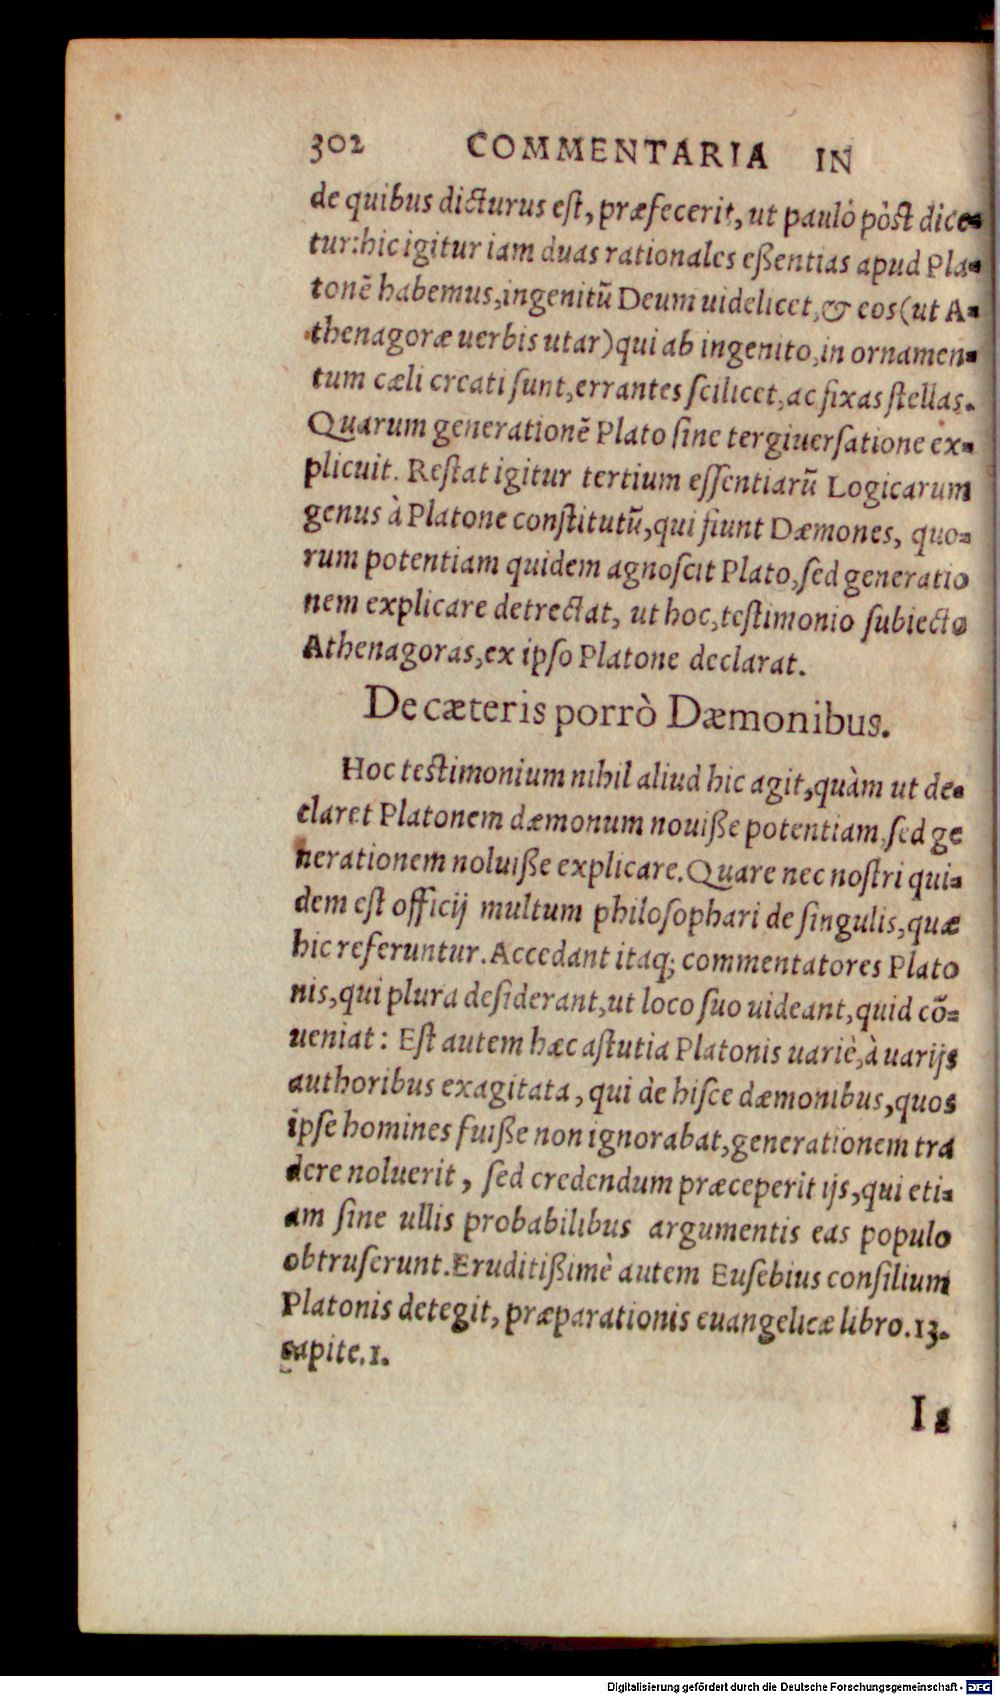 302 COMMENTARIA IN
de quibus dicturus eſt, præfecerit, ut paulò pòſt dice-
tur: hic igitur iam duas rationales eßentias apud Pla-
tonē habemus, ingenitū Deum uidelicet, & eos (ut A-
thenagoræ uerbis utar) qui ab ingenito, in ornamen-
tum cæli creati ſunt, errantes ſcilicet, ac fixas ſtellas.
Quarum generationē Plato ſine tergiuerſatione ex-
plicuit. Reſtat igitur tertium eſſentiarū Logicarum
genus à Platone conſtitutū, qui fiunt Dæmones, quo-
rum potentiam quidem agnoſcit Plato, ſed generatio
nem explicare detrectat, ut hoc, teſtimonio ſubiecto
Athenagoras, ex ipſo Platone declarat.
De cæteris porrò Dæmonibus.
Hoc teſtimonium nihil aliud hic agit, quàm ut de-
claret Platonem dæmonum nouiße potentiam, ſed ge
nerationem noluiße explicare. Quare nec noſtri qui-
dem eſt officij multum philoſophari de ſingulis, quæ
hic referuntur. Accedant itaq; commentatores Plato
nis, qui plura deſiderant, ut loco ſuo uideant, quid cō-
ueniat: Eſt autem hæc aſtutia Platonis uariè, à uarijs
authoribus exagitata, qui de hiſce dæmonibus, quos
ipſe homines fuiße non ignorabat, generationem tra
dere noluerit, ſed credendum præceperit ijs, qui eti-
am ſine ullis probabilibus argumentis eas populo
obtruſerunt. Eruditißimè autem Euſebius conſilium
Platonis detegit, præparationis euangelicæ libro. 13.
capite. 1.
Digitalisierung gefördert durch die Deutsche Forschungsgemeinschaft - DFG